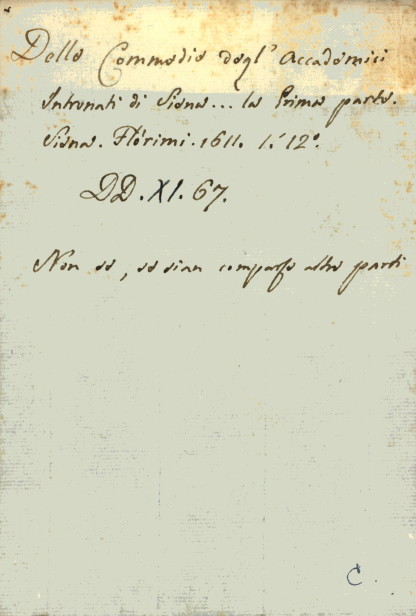 Delle Commedie degl' Accademici
Intronati di Siena... la Prima parte.
Siena. Florimi. 1611. 1. 12º.
DD. XI. 67.
Non so, se sian comparse altre parti
C